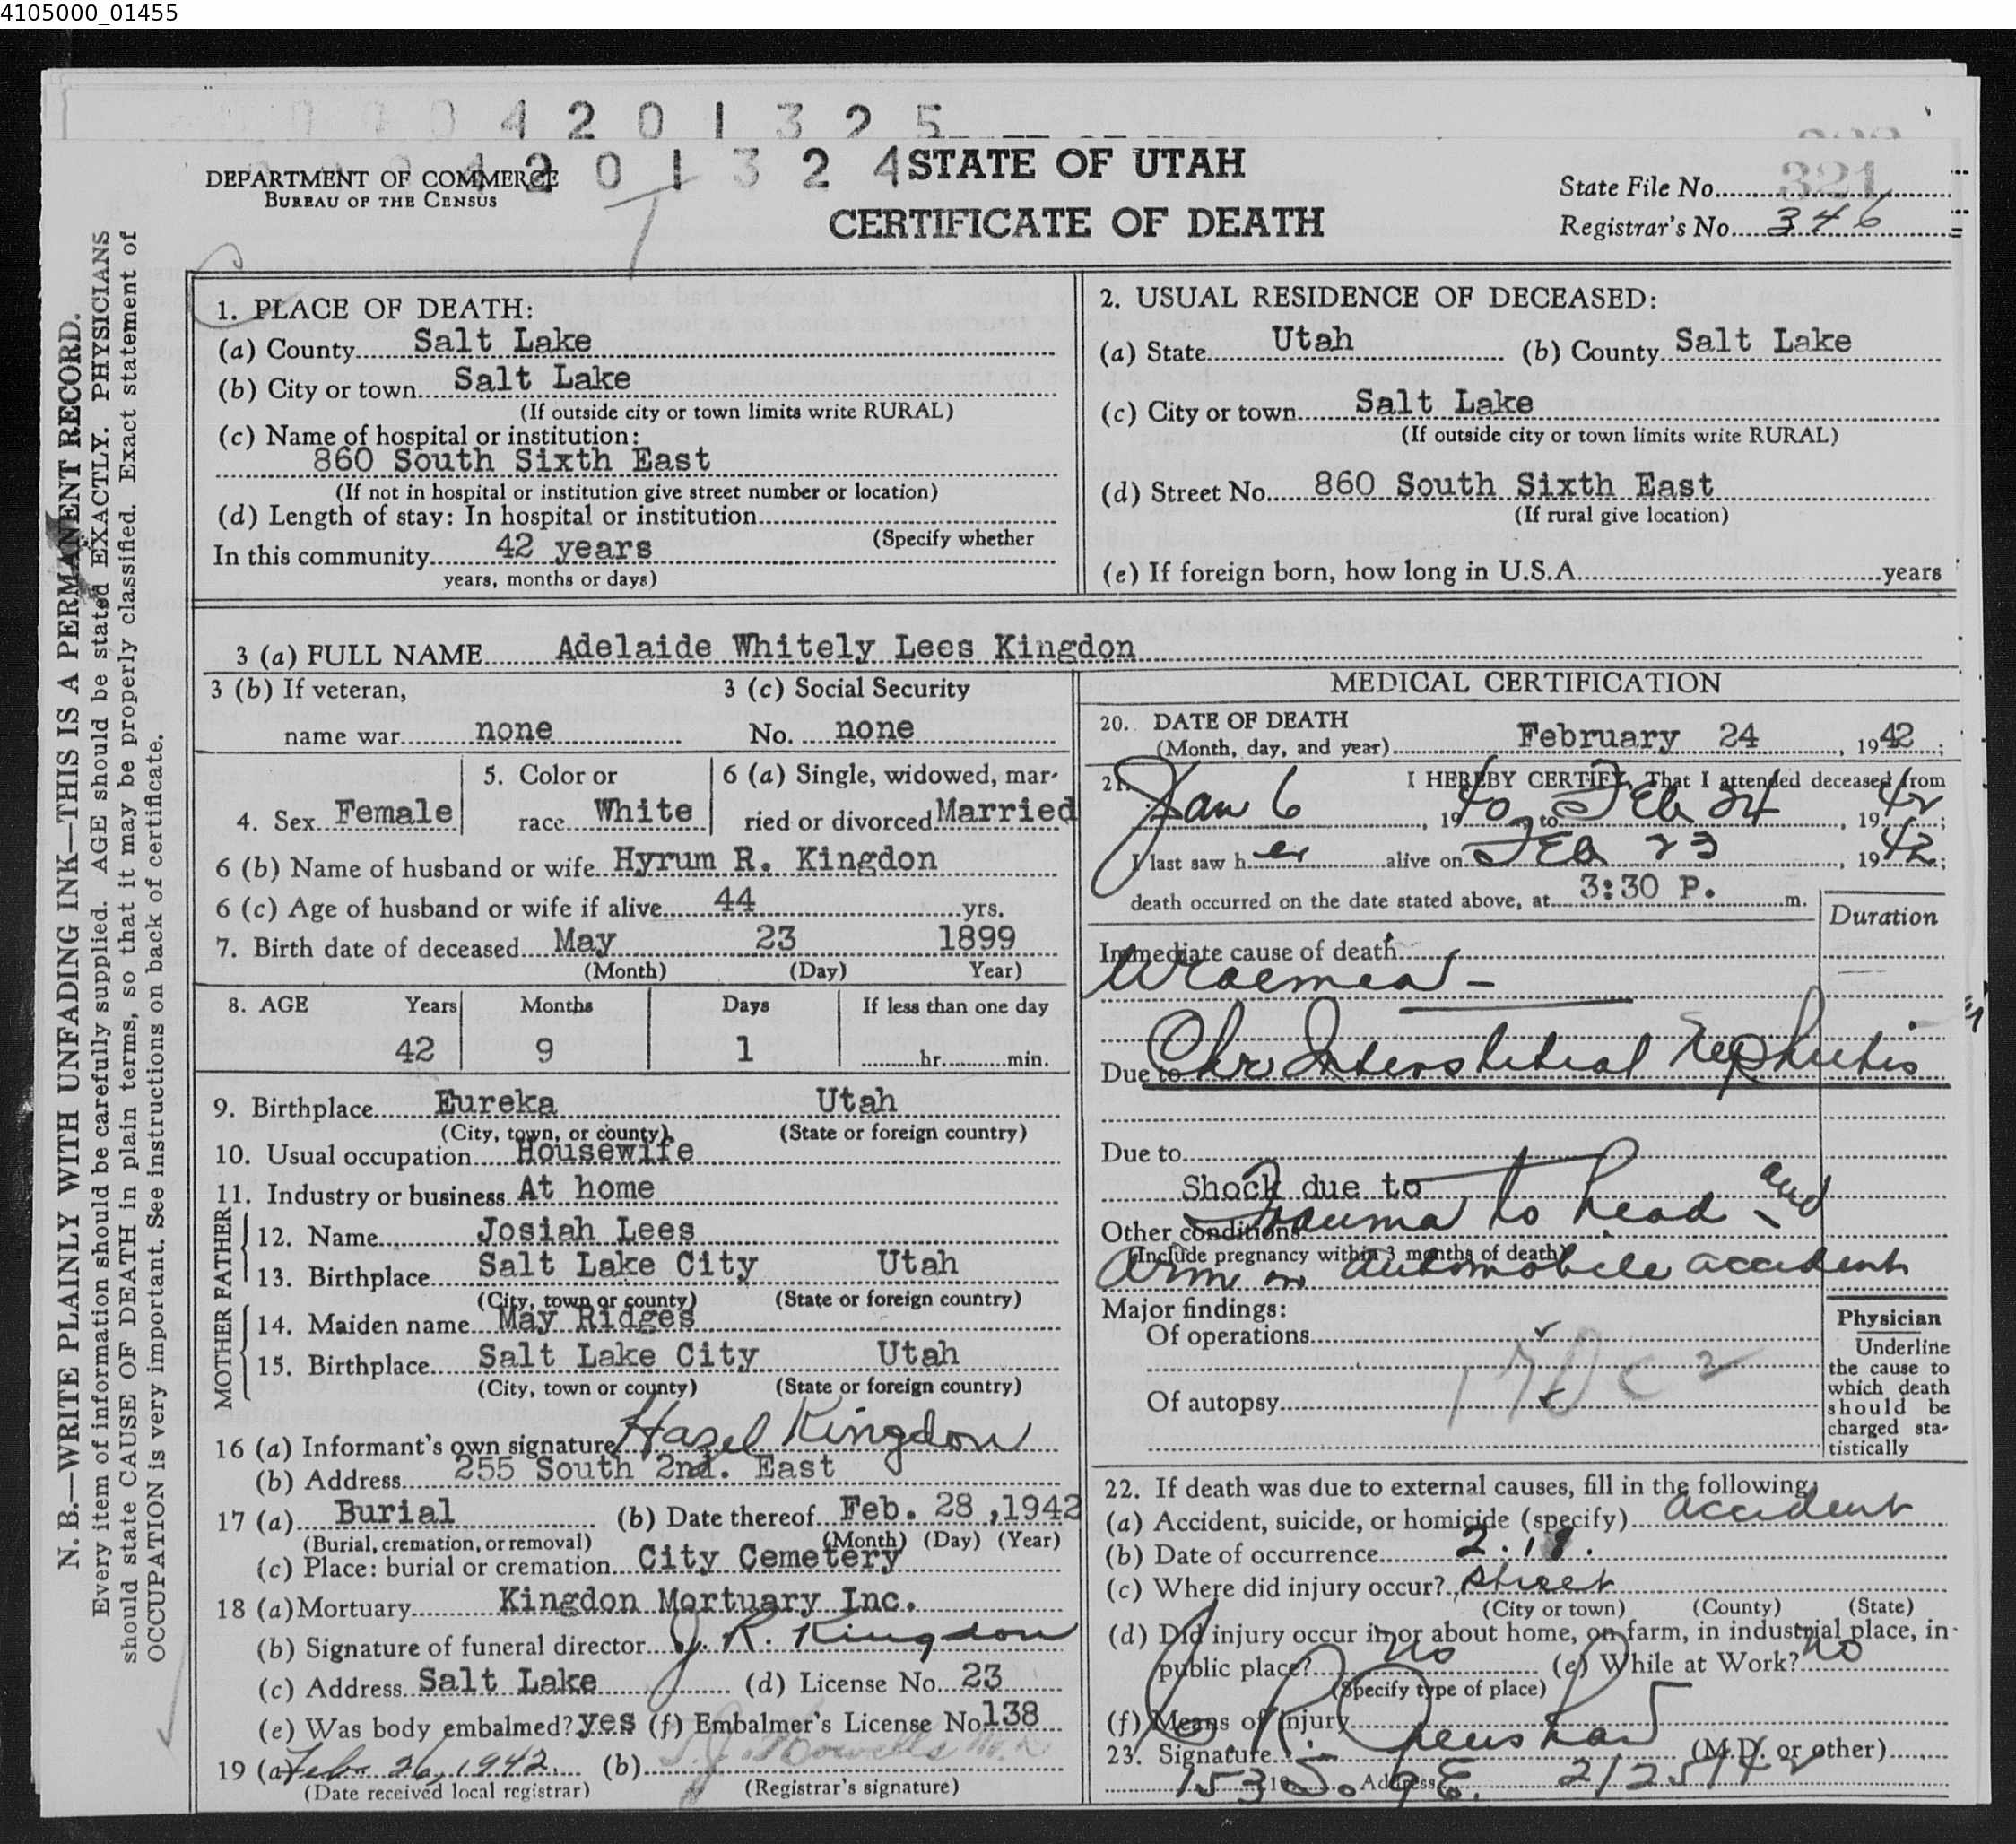 4105000_01455
4 2 0 1 3 2 5
4 2 0 1 3 2 4
DEPARTMENT OF COMMERCE
BUREAU OF THE CENSUS
STATE OF UTAH
CERTIFICATE OF DEATH
State File No. 321
Registrar's No. 346
N. B.—WRITE PLAINLY WITH UNFADING INK—THIS IS A PERMANENT RECORD.
Every item of information should be carefully supplied. AGE should be stated EXACTLY. PHYSICIANS
should state CAUSE OF DEATH in plain terms, so that it may be properly classified. Exact statement of
OCCUPATION is very important. See instructions on back of certificate.
1. PLACE OF DEATH:
(a) County Salt Lake
(b) City or town Salt Lake
(If outside city or town limits write RURAL)
(c) Name of hospital or institution:
860 South Sixth East
(If not in hospital or institution give street number or location)
(d) Length of stay: In hospital or institution
(Specify whether
In this community 42 years
years, months or days)
2. USUAL RESIDENCE OF DECEASED:
(a) State Utah (b) County Salt Lake
(c) City or town Salt Lake
(If outside city or town limits write RURAL)
(d) Street No. 860 South Sixth East
(If rural give location)
(e) If foreign born, how long in U.S.A. years
3 (a) FULL NAME Adelaide Whitely Lees Kingdon
3 (b) If veteran, 3 (c) Social Security
name war none No. none
4. Sex Female 5. Color or race White 6 (a) Single, widowed, mar-
ried or divorced Married
6 (b) Name of husband or wife Hyrum R. Kingdon
6 (c) Age of husband or wife if alive 44 yrs.
7. Birth date of deceased May 23 1899
(Month) (Day) Year)
8. AGE Years Months Days If less than one day
42 9 1 hr. min.
9. Birthplace Eureka Utah
(City, town, or county) (State or foreign country)
10. Usual occupation Housewife
11. Industry or business At home
FATHER
12. Name Josiah Lees
13. Birthplace Salt Lake City Utah
(City, town or county) (State or foreign country)
MOTHER
14. Maiden name May Ridges
15. Birthplace Salt Lake City Utah
(City, town or county) (State or foreign country)
16 (a) Informant's own signature Hazel Kingdon
(b) Address 255 South 2nd. East
17 (a) Burial (b) Date thereof Feb. 28,1942
(Burial, cremation, or removal) (Month) (Day) (Year)
(c) Place: burial or cremation City Cemetery
18 (a) Mortuary Kingdon Mortuary Inc.
(b) Signature of funeral director J. R. Kingdon
(c) Address Salt Lake (d) License No. 23
(e) Was body embalmed? yes (f) Embalmer's License No. 138
19 (a) Feb. 26, 1942. (b) T. J. Howells M.D.
(Date received local registrar) (Registrar's signature)
MEDICAL CERTIFICATION
20. DATE OF DEATH
(Month, day, and year) February 24, 1942;
21. I HEREBY CERTIFY, That I attended deceased from
Jan 6, 1940, to Feb 24, 1942;
I last saw her alive on Feb 23, 1942;
death occurred on the date stated above, at 3:30 P. m.
Duration
Immediate cause of death
Uraemea -
Due to Chr Interstitial Nephritis
Due to
Shock due to
Other conditions Trauma to head and
(Include pregnancy within 3 months of death)
arm in automobile accident
Major findings:
Of operations
170c 2
Of autopsy
Physician
Underline
the cause to
which death
should be
charged sta-
tistically
22. If death was due to external causes, fill in the following:
(a) Accident, suicide, or homicide (specify) accident
(b) Date of occurrence 2.18.
(c) Where did injury occur? street
(City or town) (County) (State)
(d) Did injury occur in or about home, on farm, in industrial place, in
public place? no (e) While at Work? no
(Specify type of place)
(f) Means of injury
23. Signature (M.D. or other)
153 So 9 E. Address 2/25/42